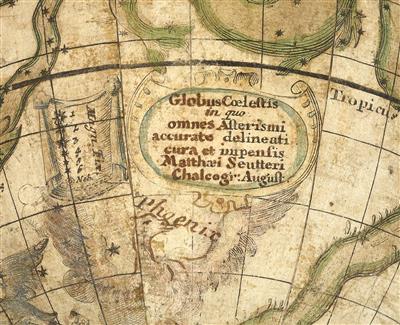 Globus Cœlestis
in quo
omnes Asterismi
accurate delineati
cura et impensis
Matthæi Seutteri
Chalcogr: August:
Tropicus
phœnix